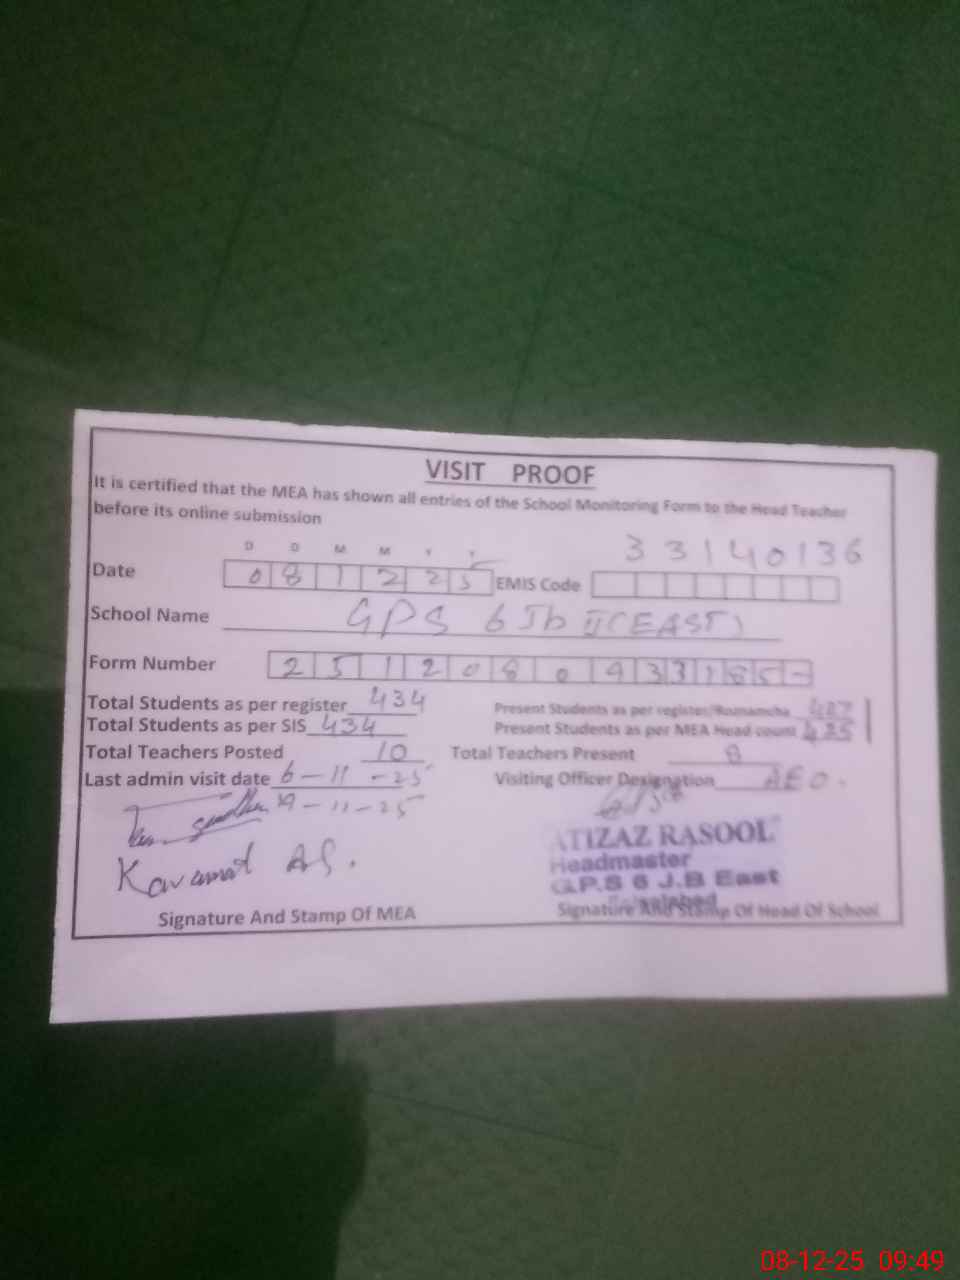 VISIT PROOF
It is certified that the MEA has shown all entries of the School Monitoring Form to the Head Teacher
before its online submission
D D M M Y Y
33140136
Date 081225 EMIS Code
School Name GPS 6 Jb (EAST)
Form Number
Total Students as per register 434 Present Students as per register/Roznamcha
Total Students as per SIS 434 Present Students as per MEA Head count 425
Total Teachers Posted 10 Total Teachers Present 8
Last admin visit date 6-11-25 Visiting Officer Designation AEO.
19-11-25
ATIZAZ RASOOL
Headmaster
G.P.S 6 J.B East
Signature And Stamp Of MEA Signature And Stamp Of Head Of School
08-12-25 09:49